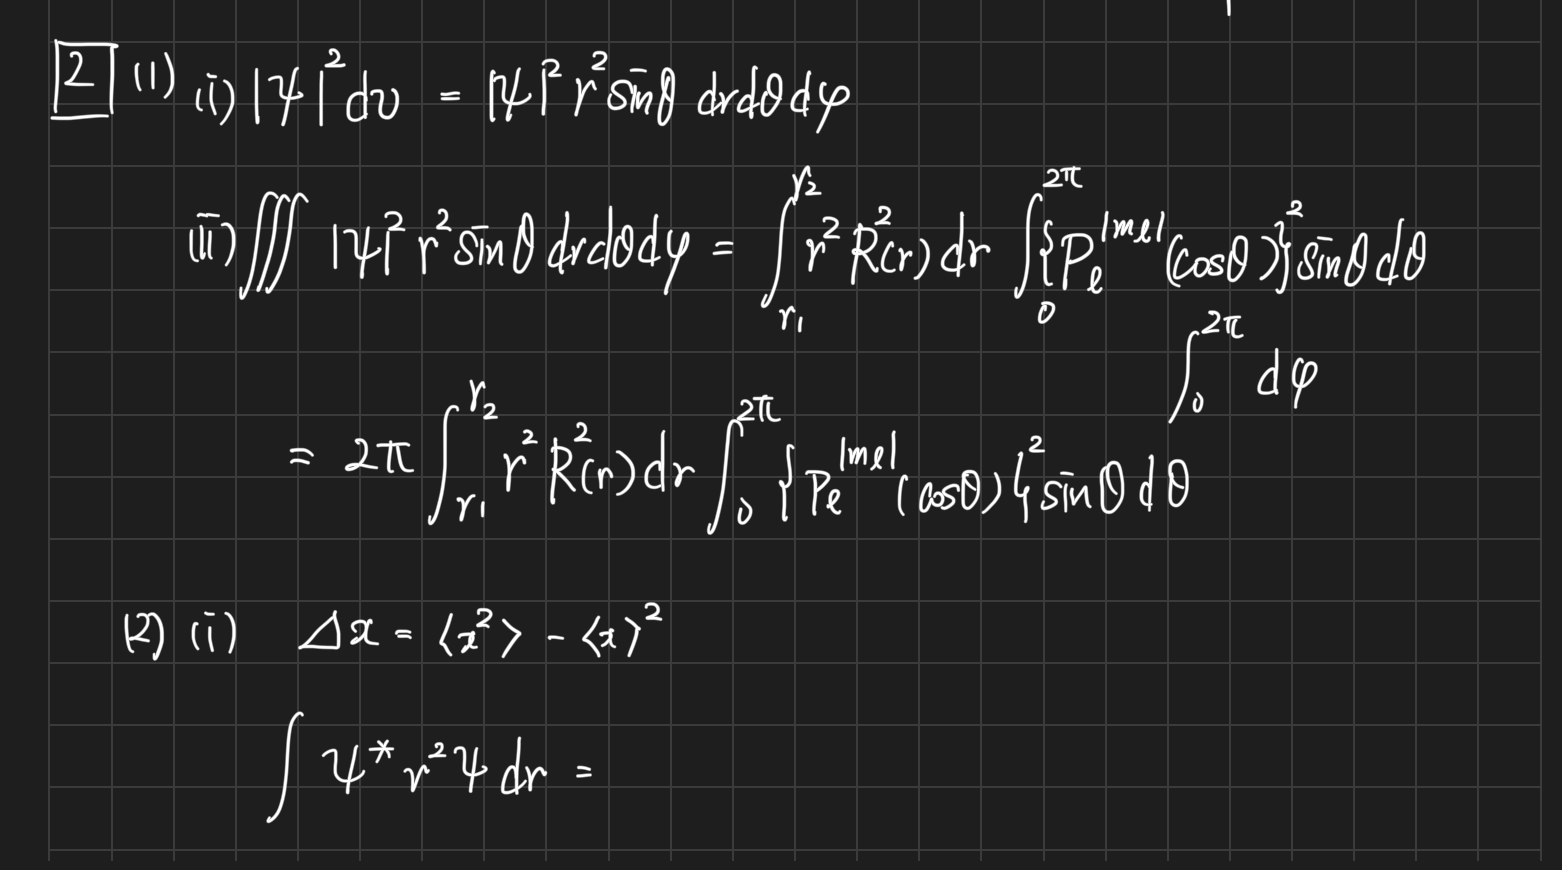 2 (1) (i) |ψ|² dv = |ψ|² r² sinθ dr dθ dφ
(ii) ∭ |ψ|² r² sinθ dr dθ dφ = ∫_{r₁}^{r₂} r² R²(r) dr ∫₀^{2π} {P_ℓ^{|mℓ|}(cosθ)}² sinθ dθ
∫₀^{2π} dφ
= 2π ∫_{r₁}^{r₂} r² R²(r) dr ∫₀^{2π} {P_ℓ^{|mℓ|}(cosθ)}² sinθ dθ
(2) (i) Δx = ⟨x²⟩ - ⟨x⟩²
∫ ψ* r² ψ dr =